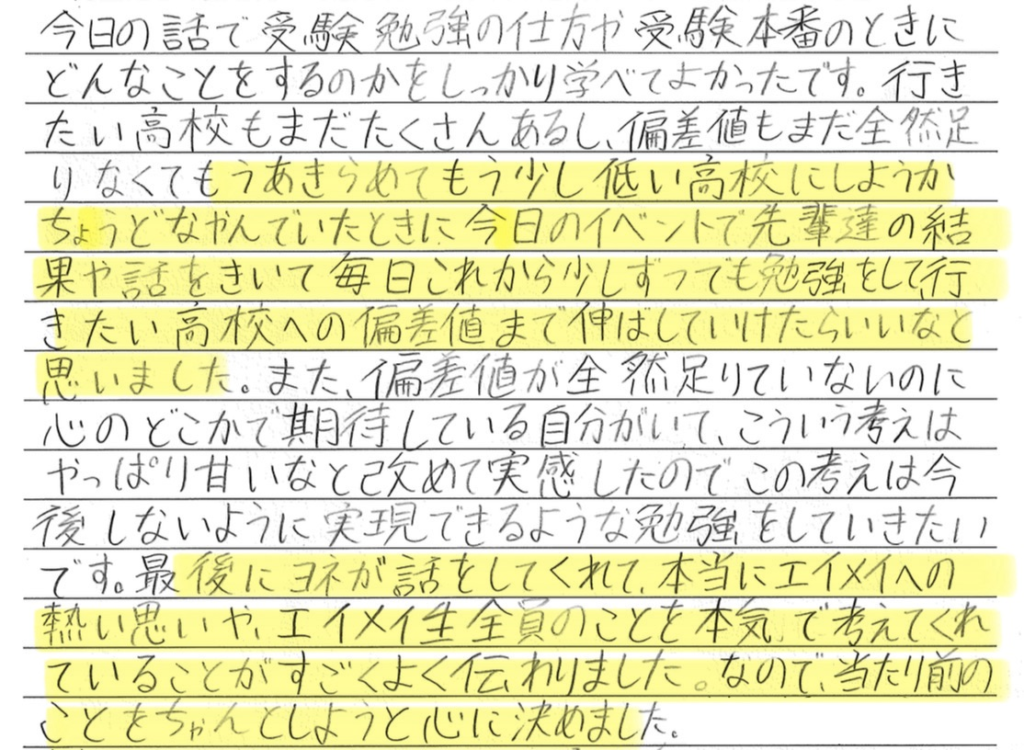 今日の話で受験勉強の仕方や受験本番のときに
どんなことをするのかをしっかり学べてよかったです。行き
たい高校もまだたくさんあるし、偏差値もまだ全然足
りなくてもうあきらめてもう少し低い高校にしようか
ちょうどなやんでいたときに今日のイベントで先輩達の結
果や話をきいて毎日これから少しずつでも勉強をして、行
きたい高校への偏差値まで伸ばしていけたらいいなと
思いました。また、偏差値が全然足りていないのに
心のどこかで期待している自分がいて、こういう考えは
やっぱり甘いなと改めて実感したのでこの考えは今
後しないように実現できるような勉強をしていきたい
です。最後にヨネが話をしてくれて、本当にエイメイへの
熱い思いや、エイメイ生全員のことを本気で考えてくれ
ていることがすごくよく伝わりました。なので、当たり前の
ことをちゃんとしようと心に決めました。